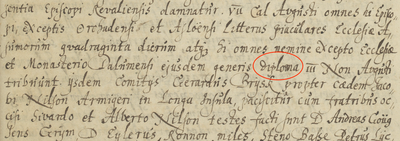 sentia Episcopi Revaliensis damnatur. VII Cal Augusti omnes hi Episco-
pi, exceptis Orehudensi et Asloensi Litteras singulares Ecclesiæ
omnium quadraginta dierum atq; di omnes nemine excepto Ecclesiæ
et Monasterio Dalumensi ejusdem generis diploma III Non Augusti
tribuunt. ijsdem Comitijs Gerardus Brysk propter cædem Jaco-
bi Nielson Armigeri in Longa Insula, paciscitur cum fratribus oc-
cisi Sivardo et Alberto Nielson testes facti sunt D Andreas
Jens Grym D Eylerus, Rönnow miles, Steno Basse Petrus Lyc